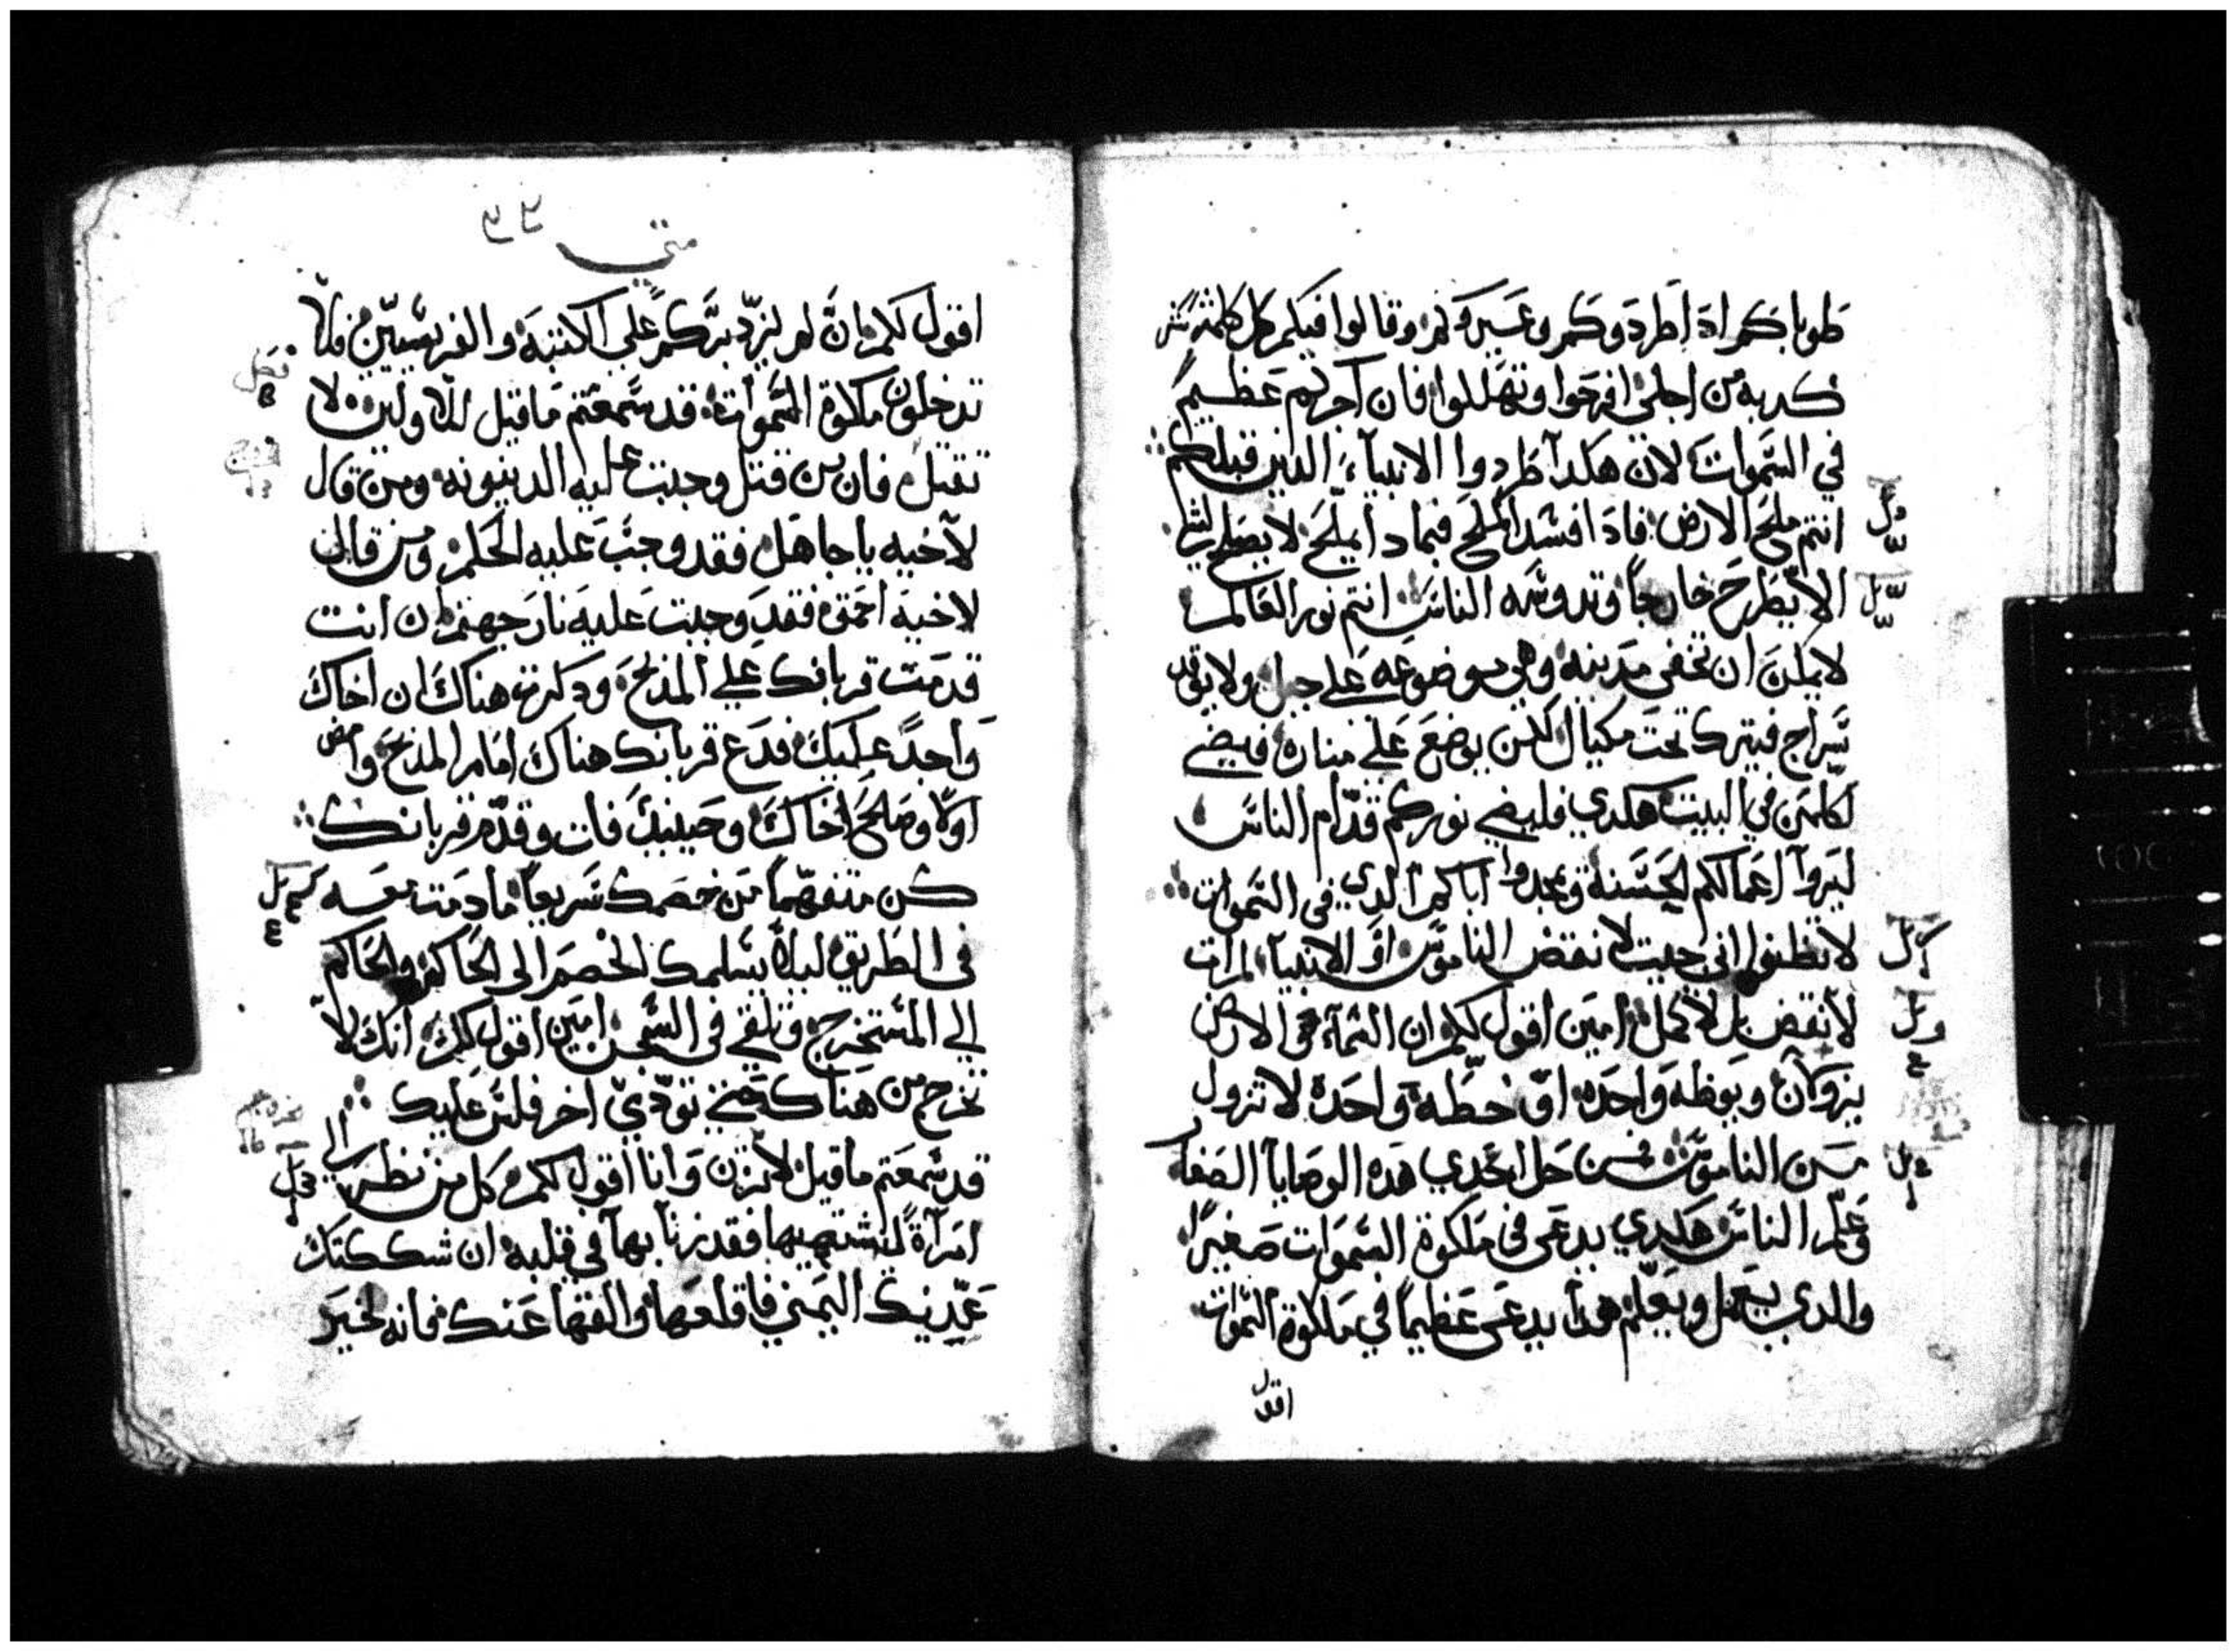 طوباكم ادا طردوكم وعيروكم وقالوا فيكم كل كلمة شر
كدبه من اجلي افرحوا وتهللوا فان اجركم عظيم
في السموات لان هكدا طردوا الانبياء الدين قبلكم
انتم ملح الارض فادا افسد الملح فبمادا يملح لا يصلح لشي
الا يطرح خارجاً وتدوسه الناس انتم نور العالم
لا يمكن ان تخفى مدينه وهي موضوعه على جبل ولا يوقد
سراج فيترك تحت مكيال لكن يوضع على مناره فيضي
لكلمن في البيت هكدي فليضي نوركم قدام الناس
ليروا اعمالكم الحسنة ويمجدوا اباكم الدي في السموات
لا تظنوا اني جيت لانقض الناموس او الانبياء لم ات
لانقض بل لاكمل امين اقول لكم ان السماء والارض
يزولان ويوطه واحده او خطه واحده لا تزول
من الناموس فمن حل احدي هده الوصايا الصغار
وعلم الناس هكدي يدعى في ملكوة السموات صغيرا
والدي يعمل ويعلم هدا يدعى عظيماً في ملكوة السموات
اقول
متى
اقول لكم ان لم يزد بركم علي الكتبة والفريسيين
تدخلون ملكوة السموات قد سمعتم ما قيل للاولين لا
تقتل فان من قتل وجبت عليه الدينونه ومن قال
لاخيه يا جاهل فقد وجب عليه الحكم ومن قال
لاخيه احمق فقد وجبت عليه نار جهنم ان انت
قدمت قربانك علي المدبح ودكرت هناك ان اخاك
واجداً عليك فدع قربانك هناك امام المدبح وامض
اولا وصالح اخاك وحينيد فات وقدم قربانك
كن متفهماً من خصمك سريعاً ما دمت معه
في الطريق ليلا يسلمك الخصم الى الحاكم والحاكم
الي المستخرج وتلقي في السجن امين اقول لك انك لا
تخرج من هناك حتي تودي اخر فلس عليك
قد سمعتم ما قيل لا تزن وانا اقول لكم كل من نظر الي
امرآة ليشتهيها فقد زنا بها في قلبه ان شككتك
عينك اليمني فاقلعها والقها عنك فانه خير